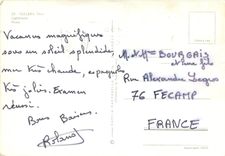 Vacances magnifiques
sous un soleil splendide,
mer très chaude, espagnoles
très jolies. Examen
réussi.
Bons Baisers
Roland
M. et Mme BOURGAIS
Rue Alexandre Legros
76 FECAMP
FRANCE